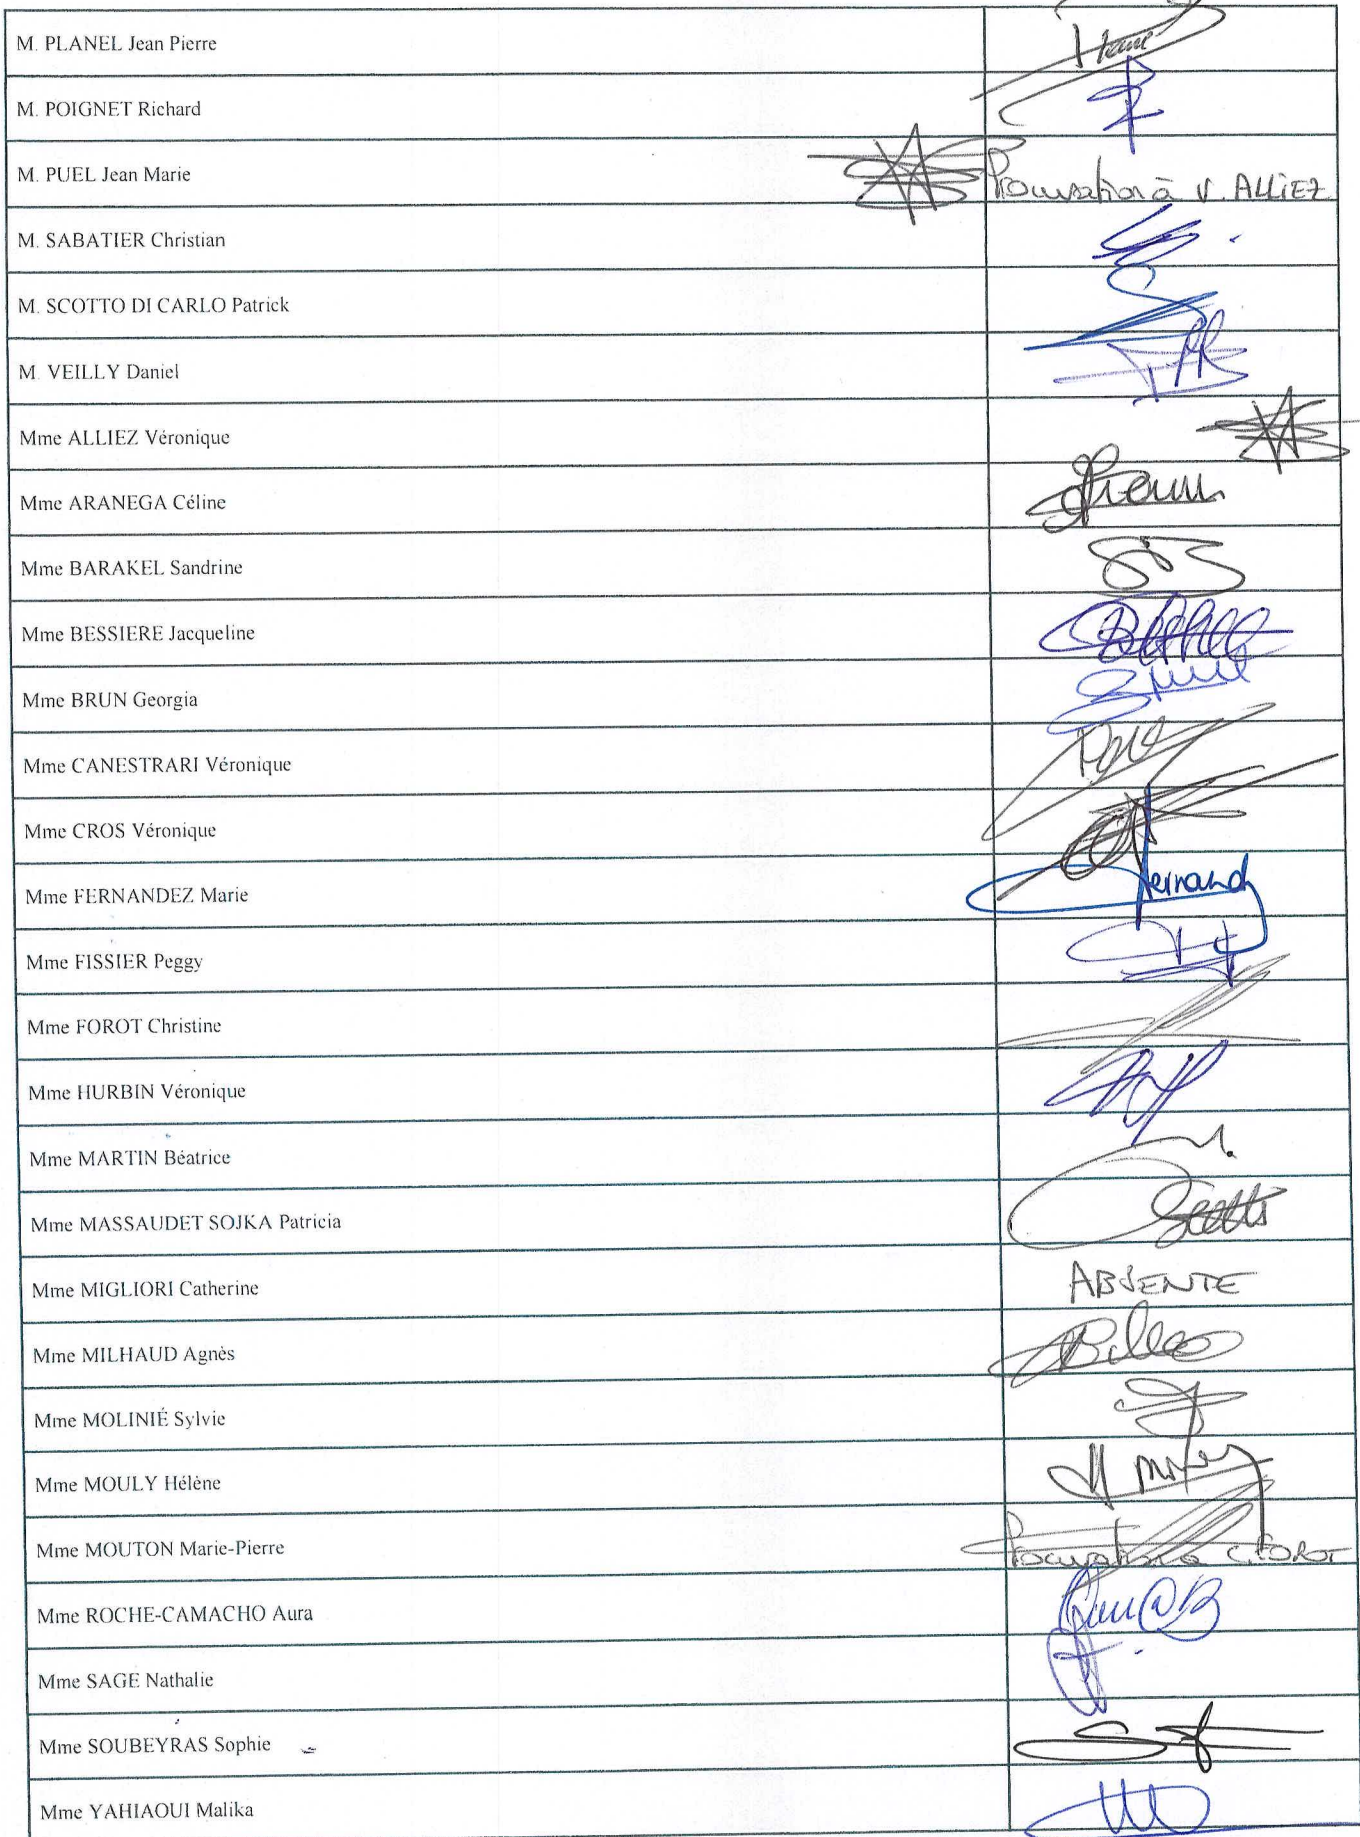 M. PLANEL Jean Pierre
M. POIGNET Richard
M. PUEL Jean Marie Procuration à V. ALLIEZ
M. SABATIER Christian
M. SCOTTO DI CARLO Patrick
M. VEILLY Daniel
Mme ALLIEZ Véronique
Mme ARANEGA Céline
Mme BARAKEL Sandrine
Mme BESSIERE Jacqueline
Mme BRUN Georgia
Mme CANESTRARI Véronique
Mme CROS Véronique
Mme FERNANDEZ Marie
Mme FISSIER Peggy
Mme FOROT Christine
Mme HURBIN Véronique
Mme MARTIN Béatrice
Mme MASSAUDET SOJKA Patricia
Mme MIGLIORI Catherine ABSENTE
Mme MILHAUD Agnès
Mme MOLINIÉ Sylvie
Mme MOULY Hélène
Mme MOUTON Marie-Pierre Procuration à C. FOROT
Mme ROCHE-CAMACHO Aura
Mme SAGE Nathalie
Mme SOUBEYRAS Sophie
Mme YAHIAOUI Malika